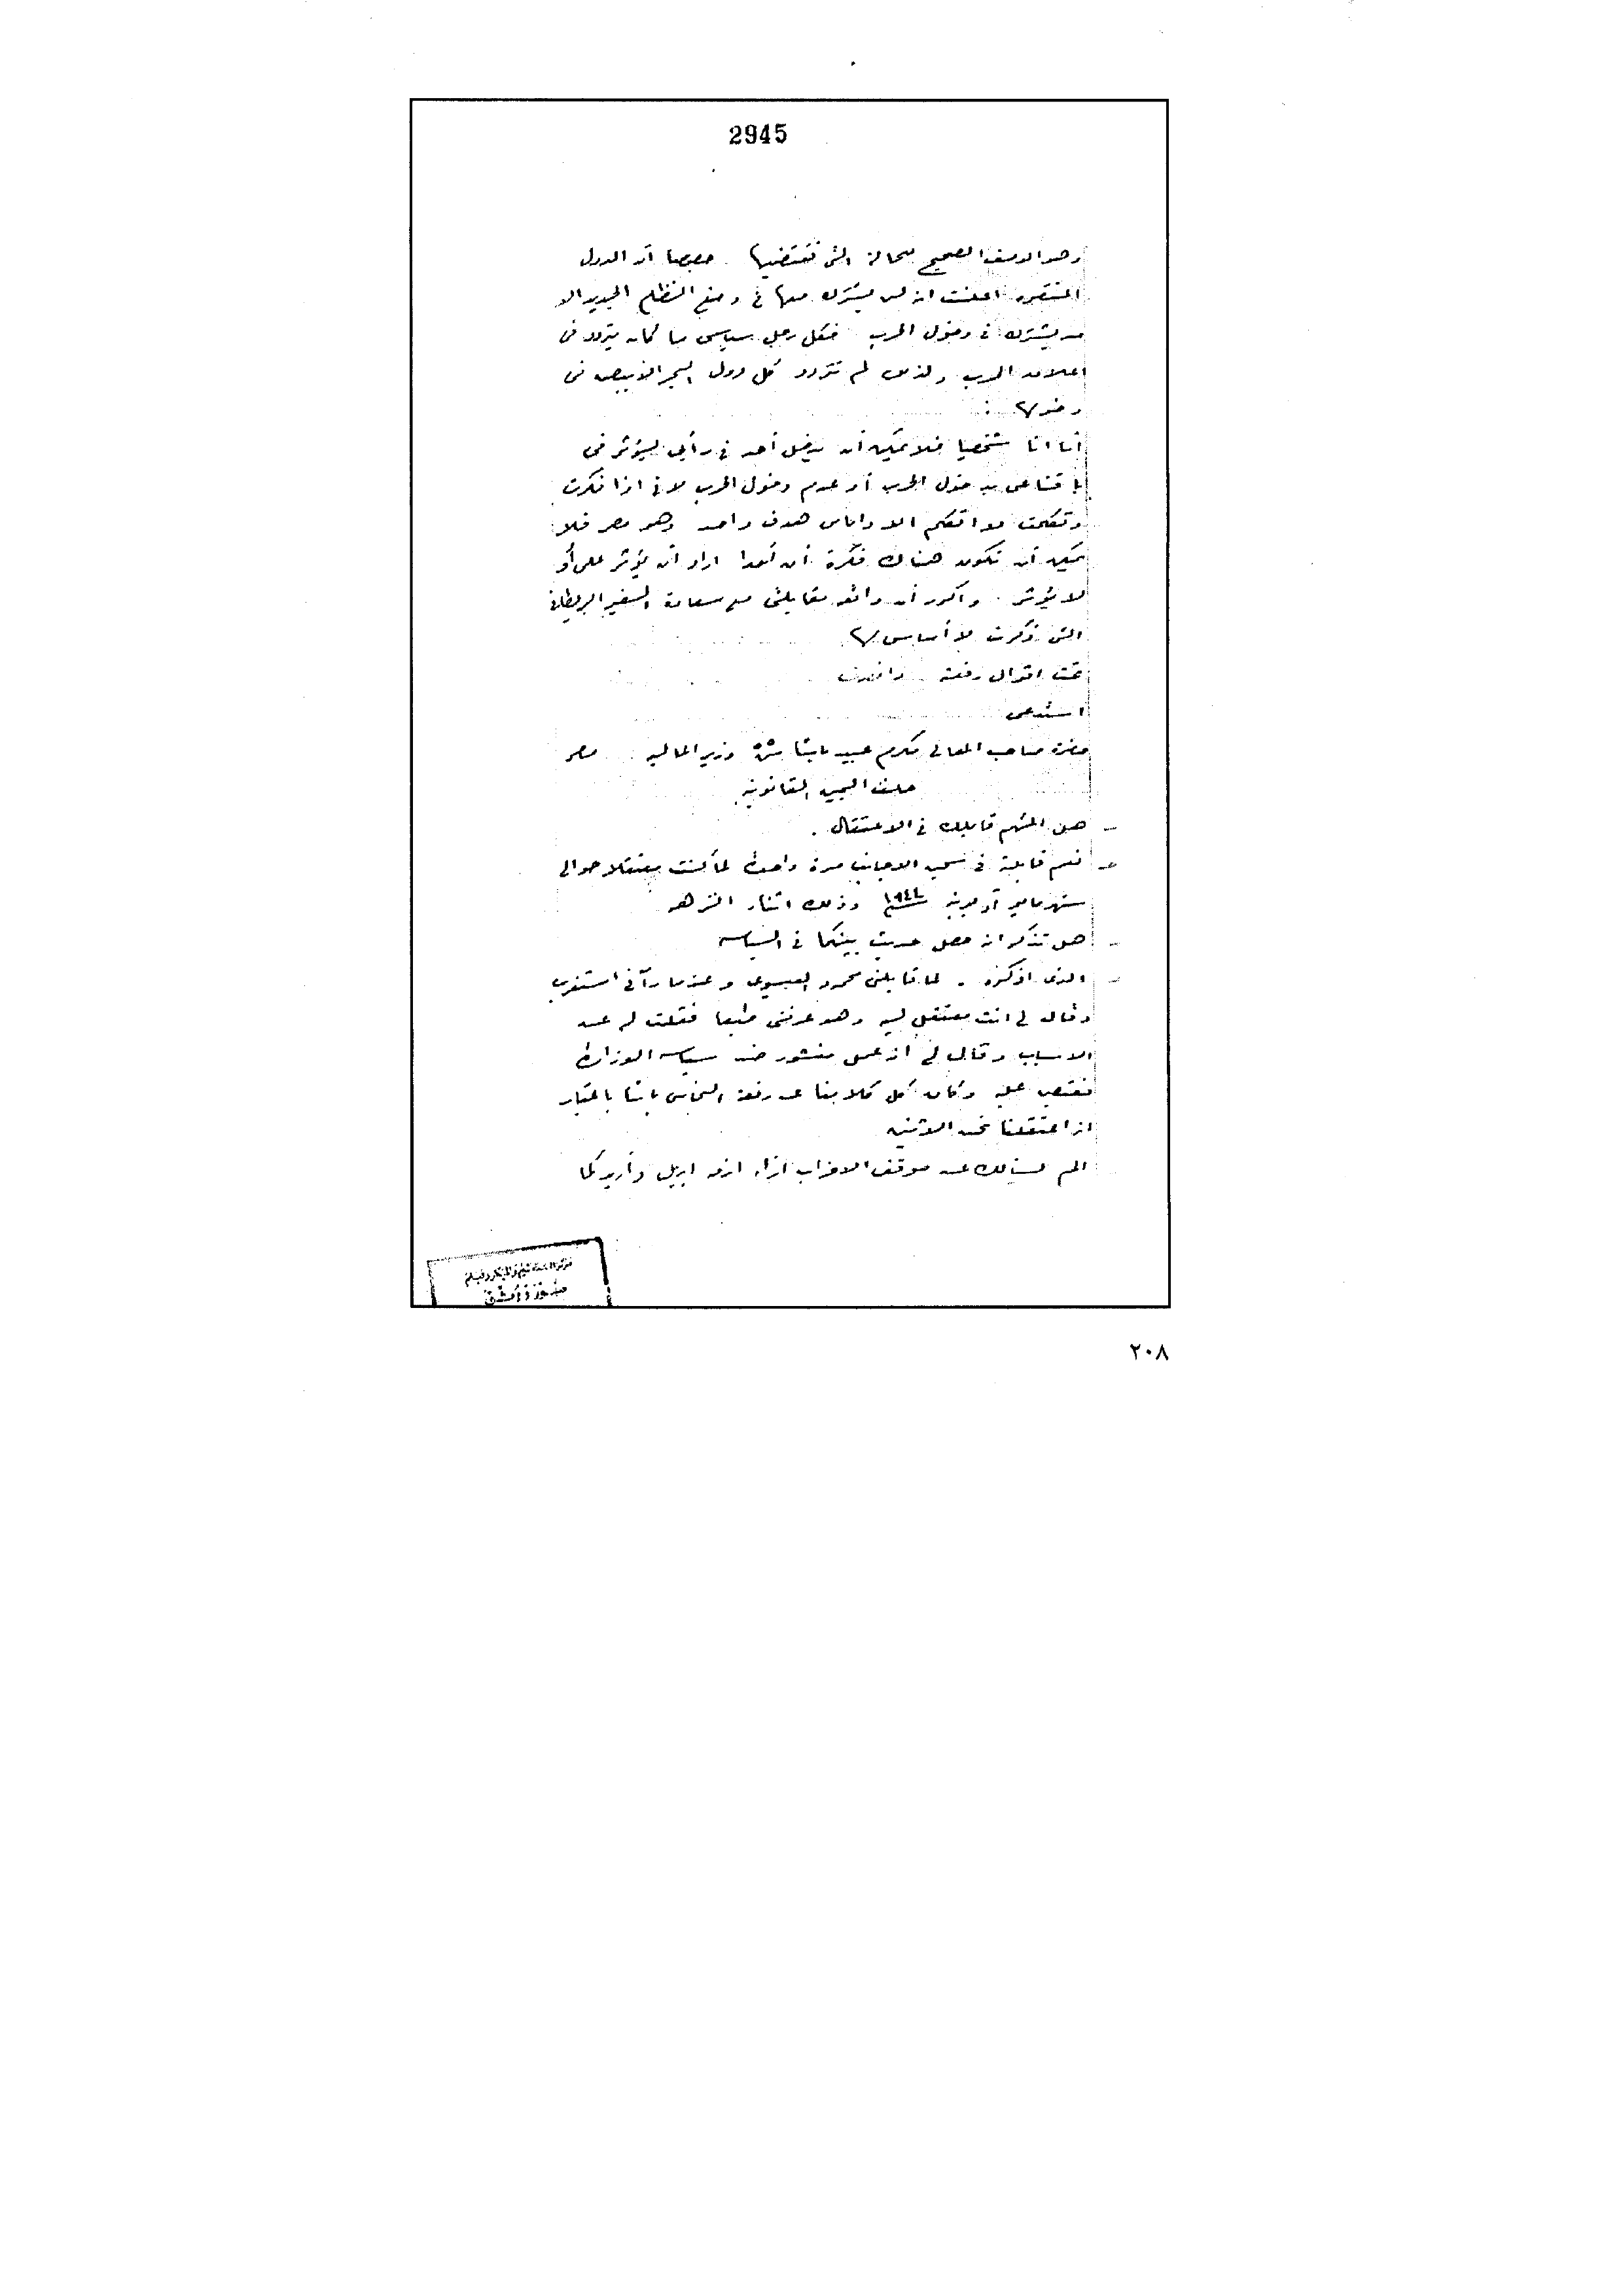 2945
وهو الوصف الصحيح للحالة التى تقتضيها . خصوصا أن الدول
المنتصرة اعلنت انه لن يشترك معها فى وضع النظام الجديد الا
من يشترك فى دخول الحرب فكل رجل سياسى ما كان يتردد فى
اعلان الحرب ولذلك لم تتردد كل دول البحر الابيض فى
دخولها .
أما انا شخصيا فلا يمكن أن يدخل أحد فى رأيى ليؤثر فى
اقناعى بدخول الحرب أو عدم دخول الحرب لانى اذا فكرت
وتكلمت لا اتكلم الا وامامى هدف واحد وهو مصر فلا
يمكن أن تكون هناك فكرة أن أحدا اراد أن يؤثر على أو
لا يؤثر . وأكرر أن واقعة مقابلتى مع سعادة السفير البريطانى
التى ذكرت لا أساس لها .
تمت اقوال رفعته وانصرف
استدعى
حضرة صاحب المعالى مكرم عبيد باشا وزير المالية مصر
حلف اليمين القانونية
– هل المتهم قابلك فى الاعتقال .
– نعم قابلته فى سجن الاجانب مرة واحدة لما كنت معتقلا حوالى
شهر مايو أو يونيه ١٩٤٤ وذلك اثناء النزهه
– هل تذكر انه حصل حديث بينكما فى السياسه
– الذى اذكره . لما قابلنى محمود العيسوى وعندما رآنى استغرب
وقال لى انت معتقل ليه وهو عرفنى طبعا فقلت له عن
الاسباب وقال لى انه عمل منشور ضد سياسه الوزارة
فقبض عليه وكان كل كلامنا عن رفعة النحاس باشا باعتبار
انه اعتقلنا نحن الاثنين
ألم يسألك عن موقف الاحزاب ازاء ازمة ابريل وأريد كما
٢٠٨